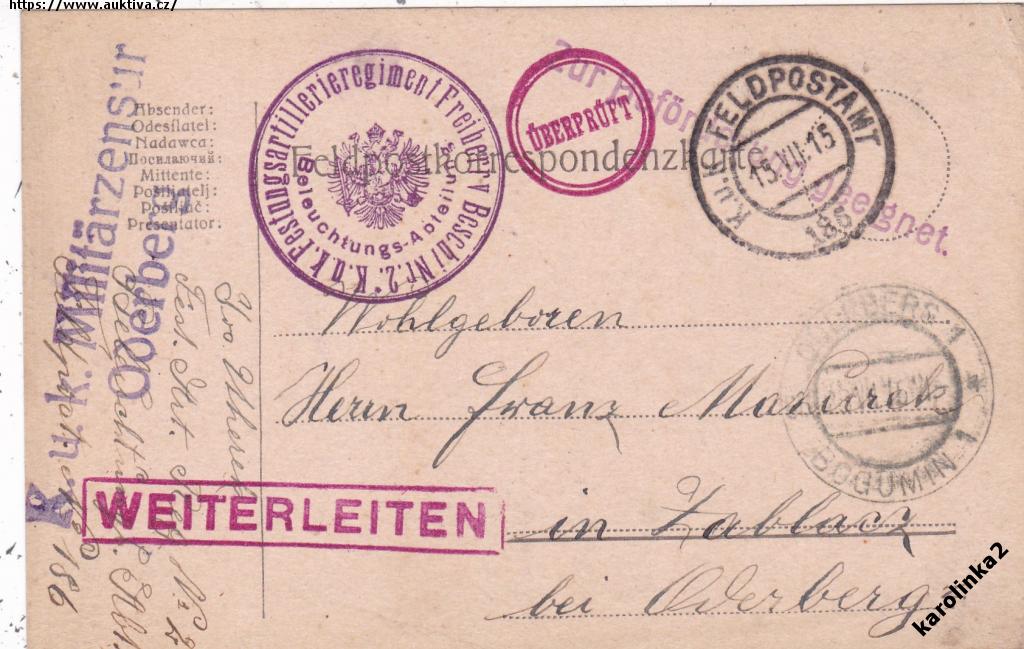 https://www.auktiva.cz/
Absender:
Odesílatel:
Nadawca:
Посилаючий:
Mittente:
Pošiljatelj:
Pošiljač:
Presentator:
Feldpostkorrespondenzkarte
K. u. k. Militärzensur
Oderberg
K.u.k. Festungsartillerieregiment Freiherr v. Beschi Nr. 2.
Beleuchtungs-Abteilung
ÜBERPRÜFT
Zur Beförderung geeignet.
K.u.K. FELDPOSTAMT
15.VII.15
186
ODERBERG 1
BOGUMIN 1
WEITERLEITEN
Wohlgeboren
Herrn Franz
in Zablacz
bei Oderberg
Fest. Art. Reg. No 2
186
karolinka2